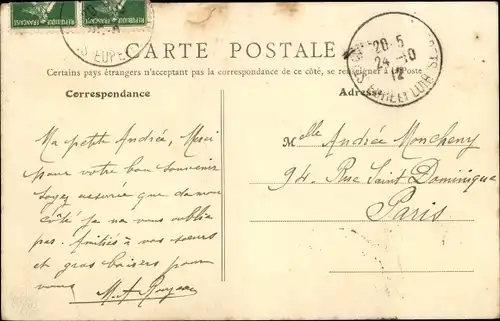 REPUBLIQUE FRANÇAISE
CARTE POSTALE
Certains pays étrangers n'acceptant pas la correspondance de ce côté, se renseigner à la Poste
Correspondance
Adresse
20-5
24-10
12
EURE ET LOIR
Ma petite Andrée, Merci
pour votre bon souvenir
soyez assurée que de mon
côté je ne vous oublie
pas. Amitiés à vos soeurs
et gros baisers pour
vous
M. A.
Melle Andrée Moncheny
94 Rue Saint Dominique
Paris